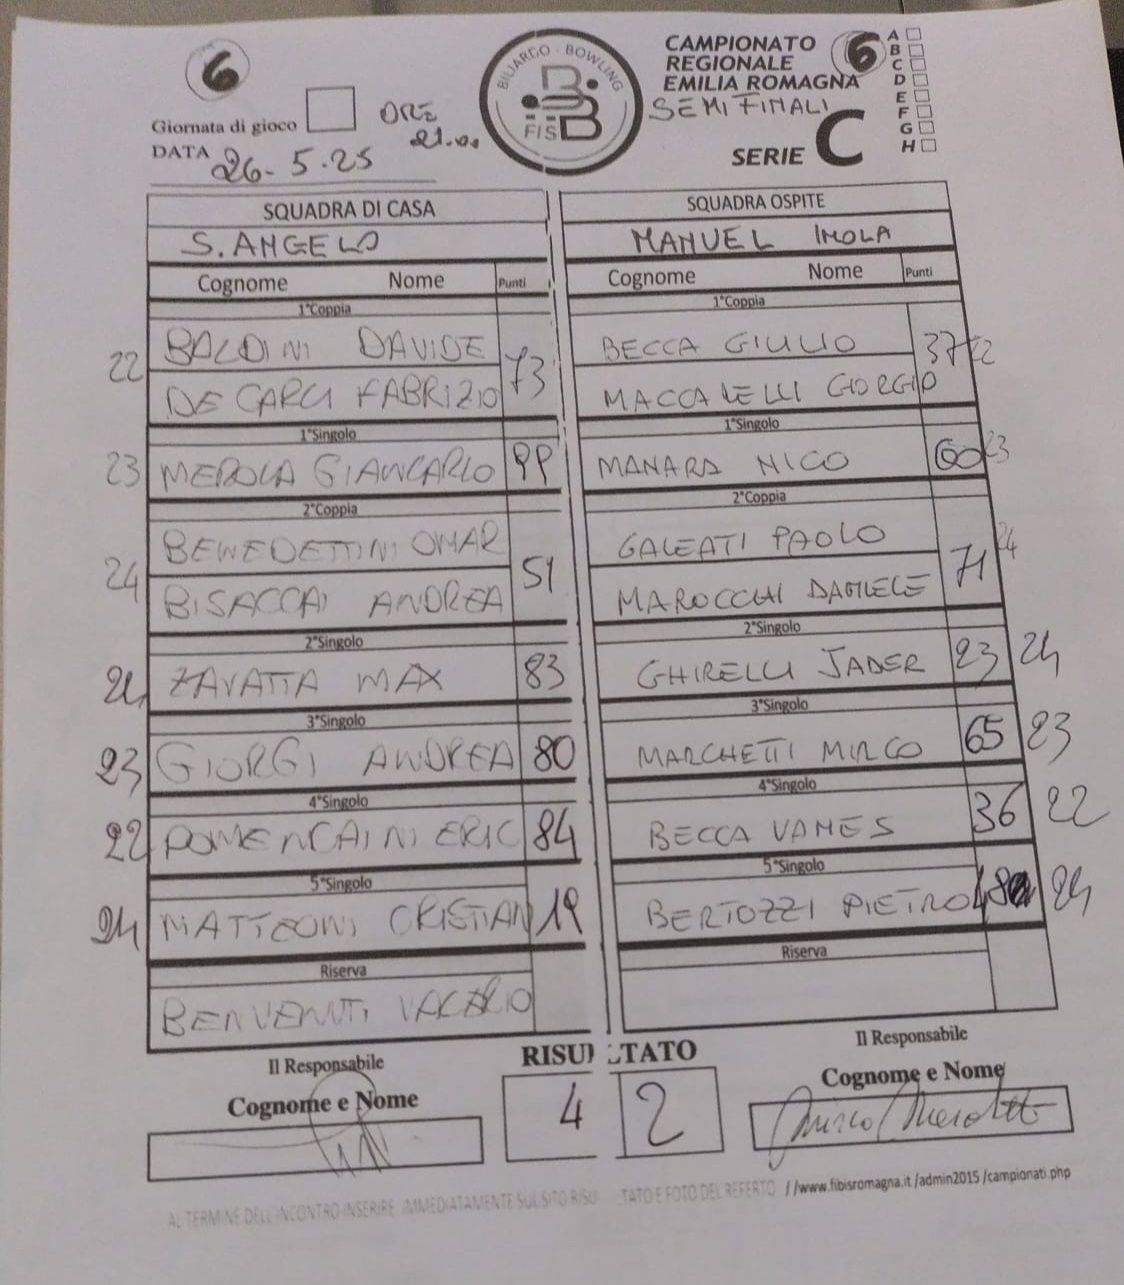 6
Giornata di gioco
ORE
21.00
DATA 26-5-25
BILIARDO - BOWLING
FISBB
CAMPIONATO
REGIONALE
EMILIA ROMAGNA
6
SEMIFINALI
SERIE C
A
B
C
D
E
F
G
H
SQUADRA DI CASA
S. ANGELO
Cognome Nome Punti
1°Coppia
22 BALDINI DAVIDE 73
DE CARLI FABRIZIO
1°Singolo
23 MEROLA GIANCARLO 99
2°Coppia
BENEDETTINI OMAR
24 BISACCHI ANDREA 51
2°Singolo
24 ZAVATTA MAX 83
3°Singolo
23 GIORGI ANDREA 80
4°Singolo
22 ERIC 84
5°Singolo
24 MATTEONI CRISTIAN 19
Riserva
BENVENUTI VALERIO
Il Responsabile
Cognome e Nome
SQUADRA OSPITE
MANUEL IMOLA
Cognome Nome Punti
1°Coppia
BECCA GIULIO 37 22
MACCARELLI GIORGIO
1°Singolo
MANARA NICO 60 23
2°Coppia
GALEATI PAOLO 24
MAROCCHI DANIELE 71
2°Singolo
GHIRELLI JADER 23 24
3°Singolo
MARCHETTI MIRCO 65 23
4°Singolo
BECCA VAMES 36 22
5°Singolo
BERTOZZI PIETRO 24
Riserva
Il Responsabile
Cognome e Nome
RISULTATO
4 2
AL TERMINE DELL'INCONTRO INSERIRE IMMEDIATAMENTE SUL SITO RISU TATO E FOTO DEL REFERTO //www.fibisromagna.it /admin2015 /campionati.php